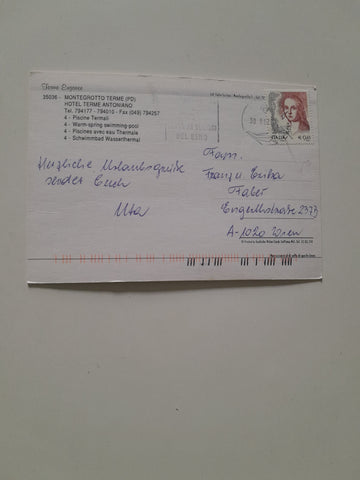 Terme Euganee
35036 - MONTEGROTTO TERME (PD)
HOTEL TERME ANTONIANO
Tel. 794177 - 794010 - Fax (049) 794257
4 - Piscine Termali
4 - Warm-spring swimming-pool
4 - Piscines avec eau Thermale
4 - Schwimmbad Wasserthermal
ITALIA
Herzliche Urlaubsgrüße
sendet Euch
Uta
Fam.
Franz u. Erika
Faber
Engerthstraße
A-1020 Wien